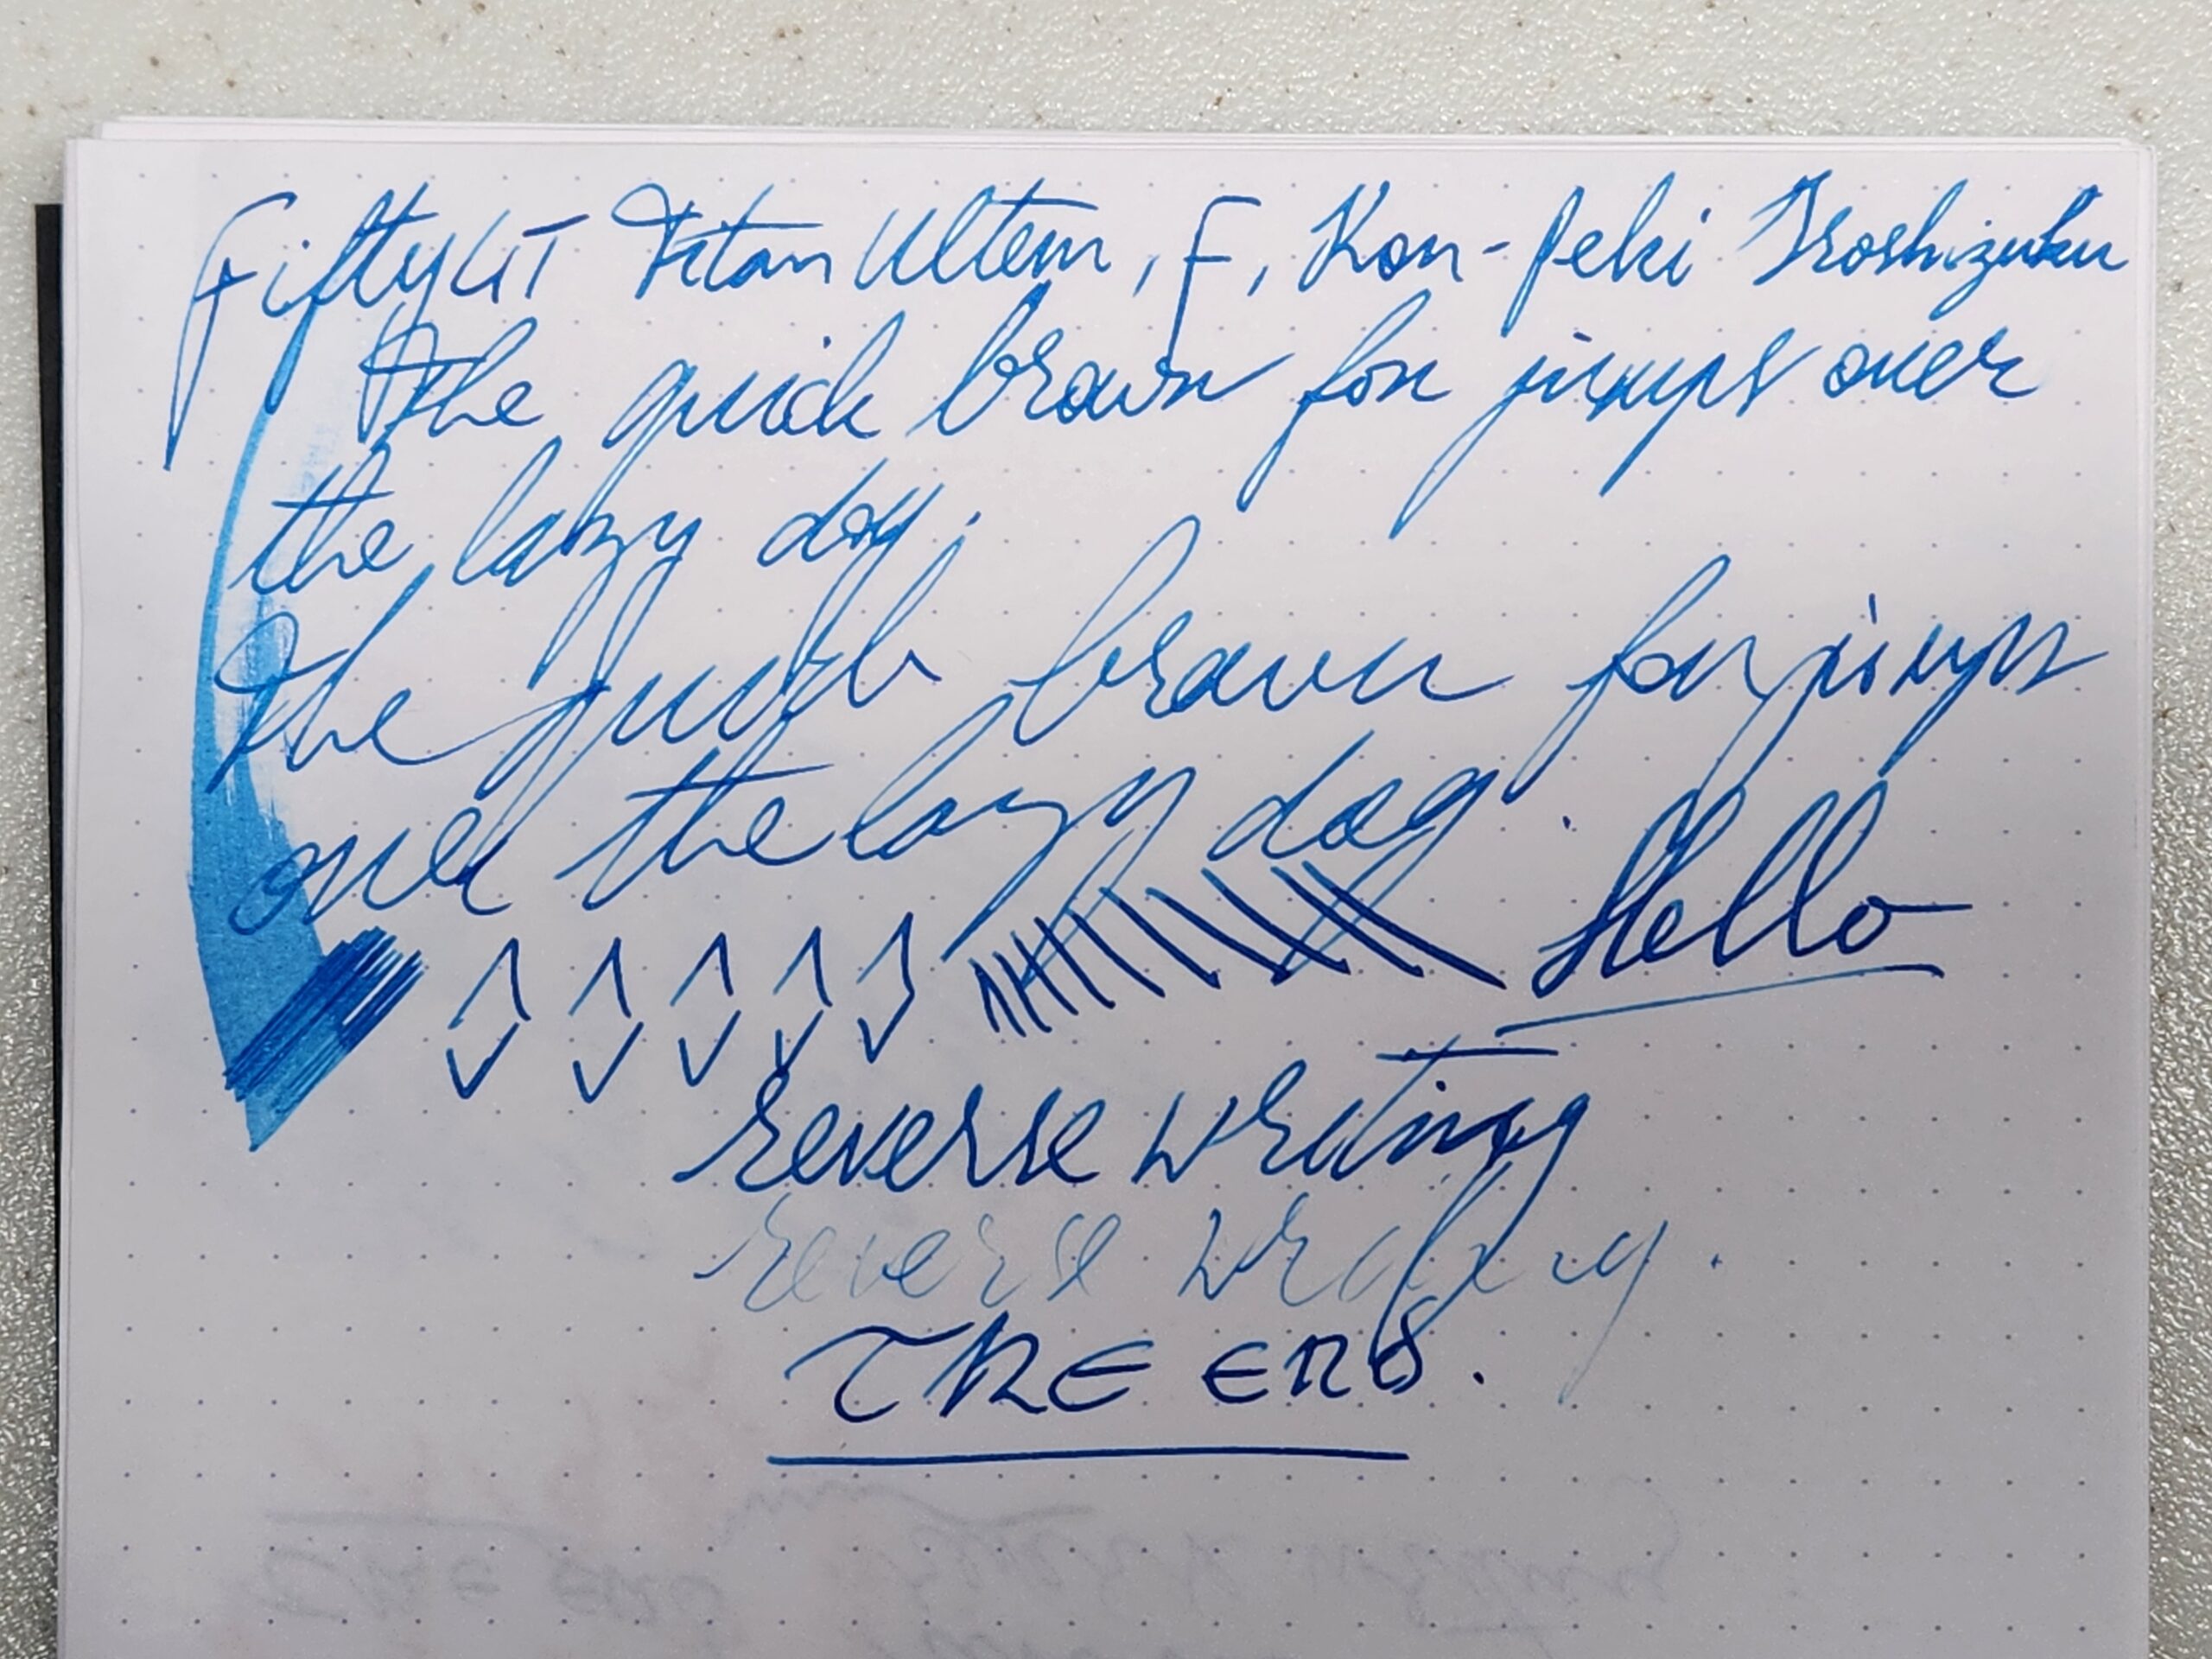 Fiftyfift Titan Ultem, F, Kon-Peki Iroshizuku
The quick brown fox jumps over
the lazy dog.
The quick brown fox jumps
over the lazy dog.
Hello
reverse writing
reverse writing.
THE END.